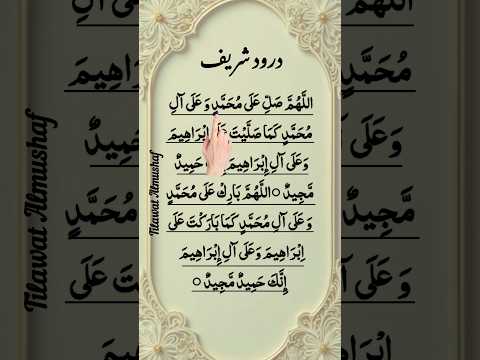 درود شریف
اللَّهُمَّ صَلِّ عَلَى مُحَمَّدٍ وَعَلَى آلِ
مُحَمَّدٍ كَمَا صَلَّيْتَ إِبْرَاهِيمَ
وَعَلَى آلِ إِبْرَاهِيمَ حَمِيدٌ
مَّجِيدٌ ○ اللَّهُمَّ بَارِكْ عَلَى مُحَمَّدٍ
وَعَلَى آلِ مُحَمَّدٍ كَمَا بَارَكْتَ عَلَى
إِبْرَاهِيمَ وَعَلَى آلِ إِبْرَاهِيمَ
إِنَّكَ حَمِيدٌ مَّجِيدٌ ○
Tilawat Almushaf